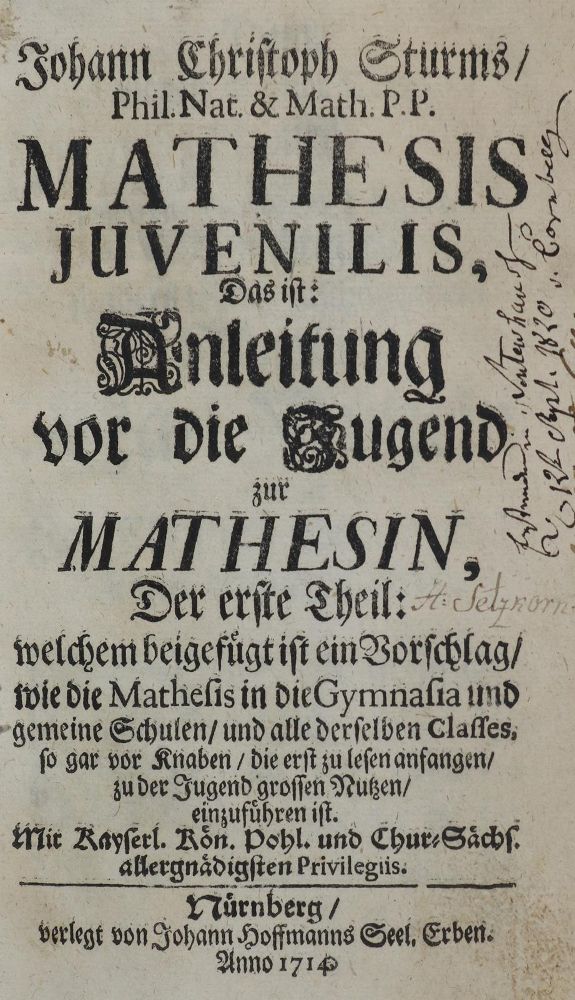 Johann Christoph Sturms/
Phil. Nat. & Math. P.P.
MATHESIS
JUVENILIS,
Das ist:
Anleitung
vor die Jugend
zur
MATHESIN,
Der erste Theil:
welchem beigefügt ist ein Vorschlag/
wie die Mathesis in die Gymnasia und
gemeine Schulen/ und alle derselben Classes,
so gar vor Knaben/ die erst zu lesen anfangen/
zu der Jugend grossen Nutzen/
einzuführen ist.
Mit Kayserl. Kön. Pohl. und Chur-Sächs.
allergnädigsten Privilegiis.
Nürnberg/
verlegt von Johann Hoffmanns Seel. Erben.
Anno 1714
H: Setzkorn
12t Sept. 1820 v.